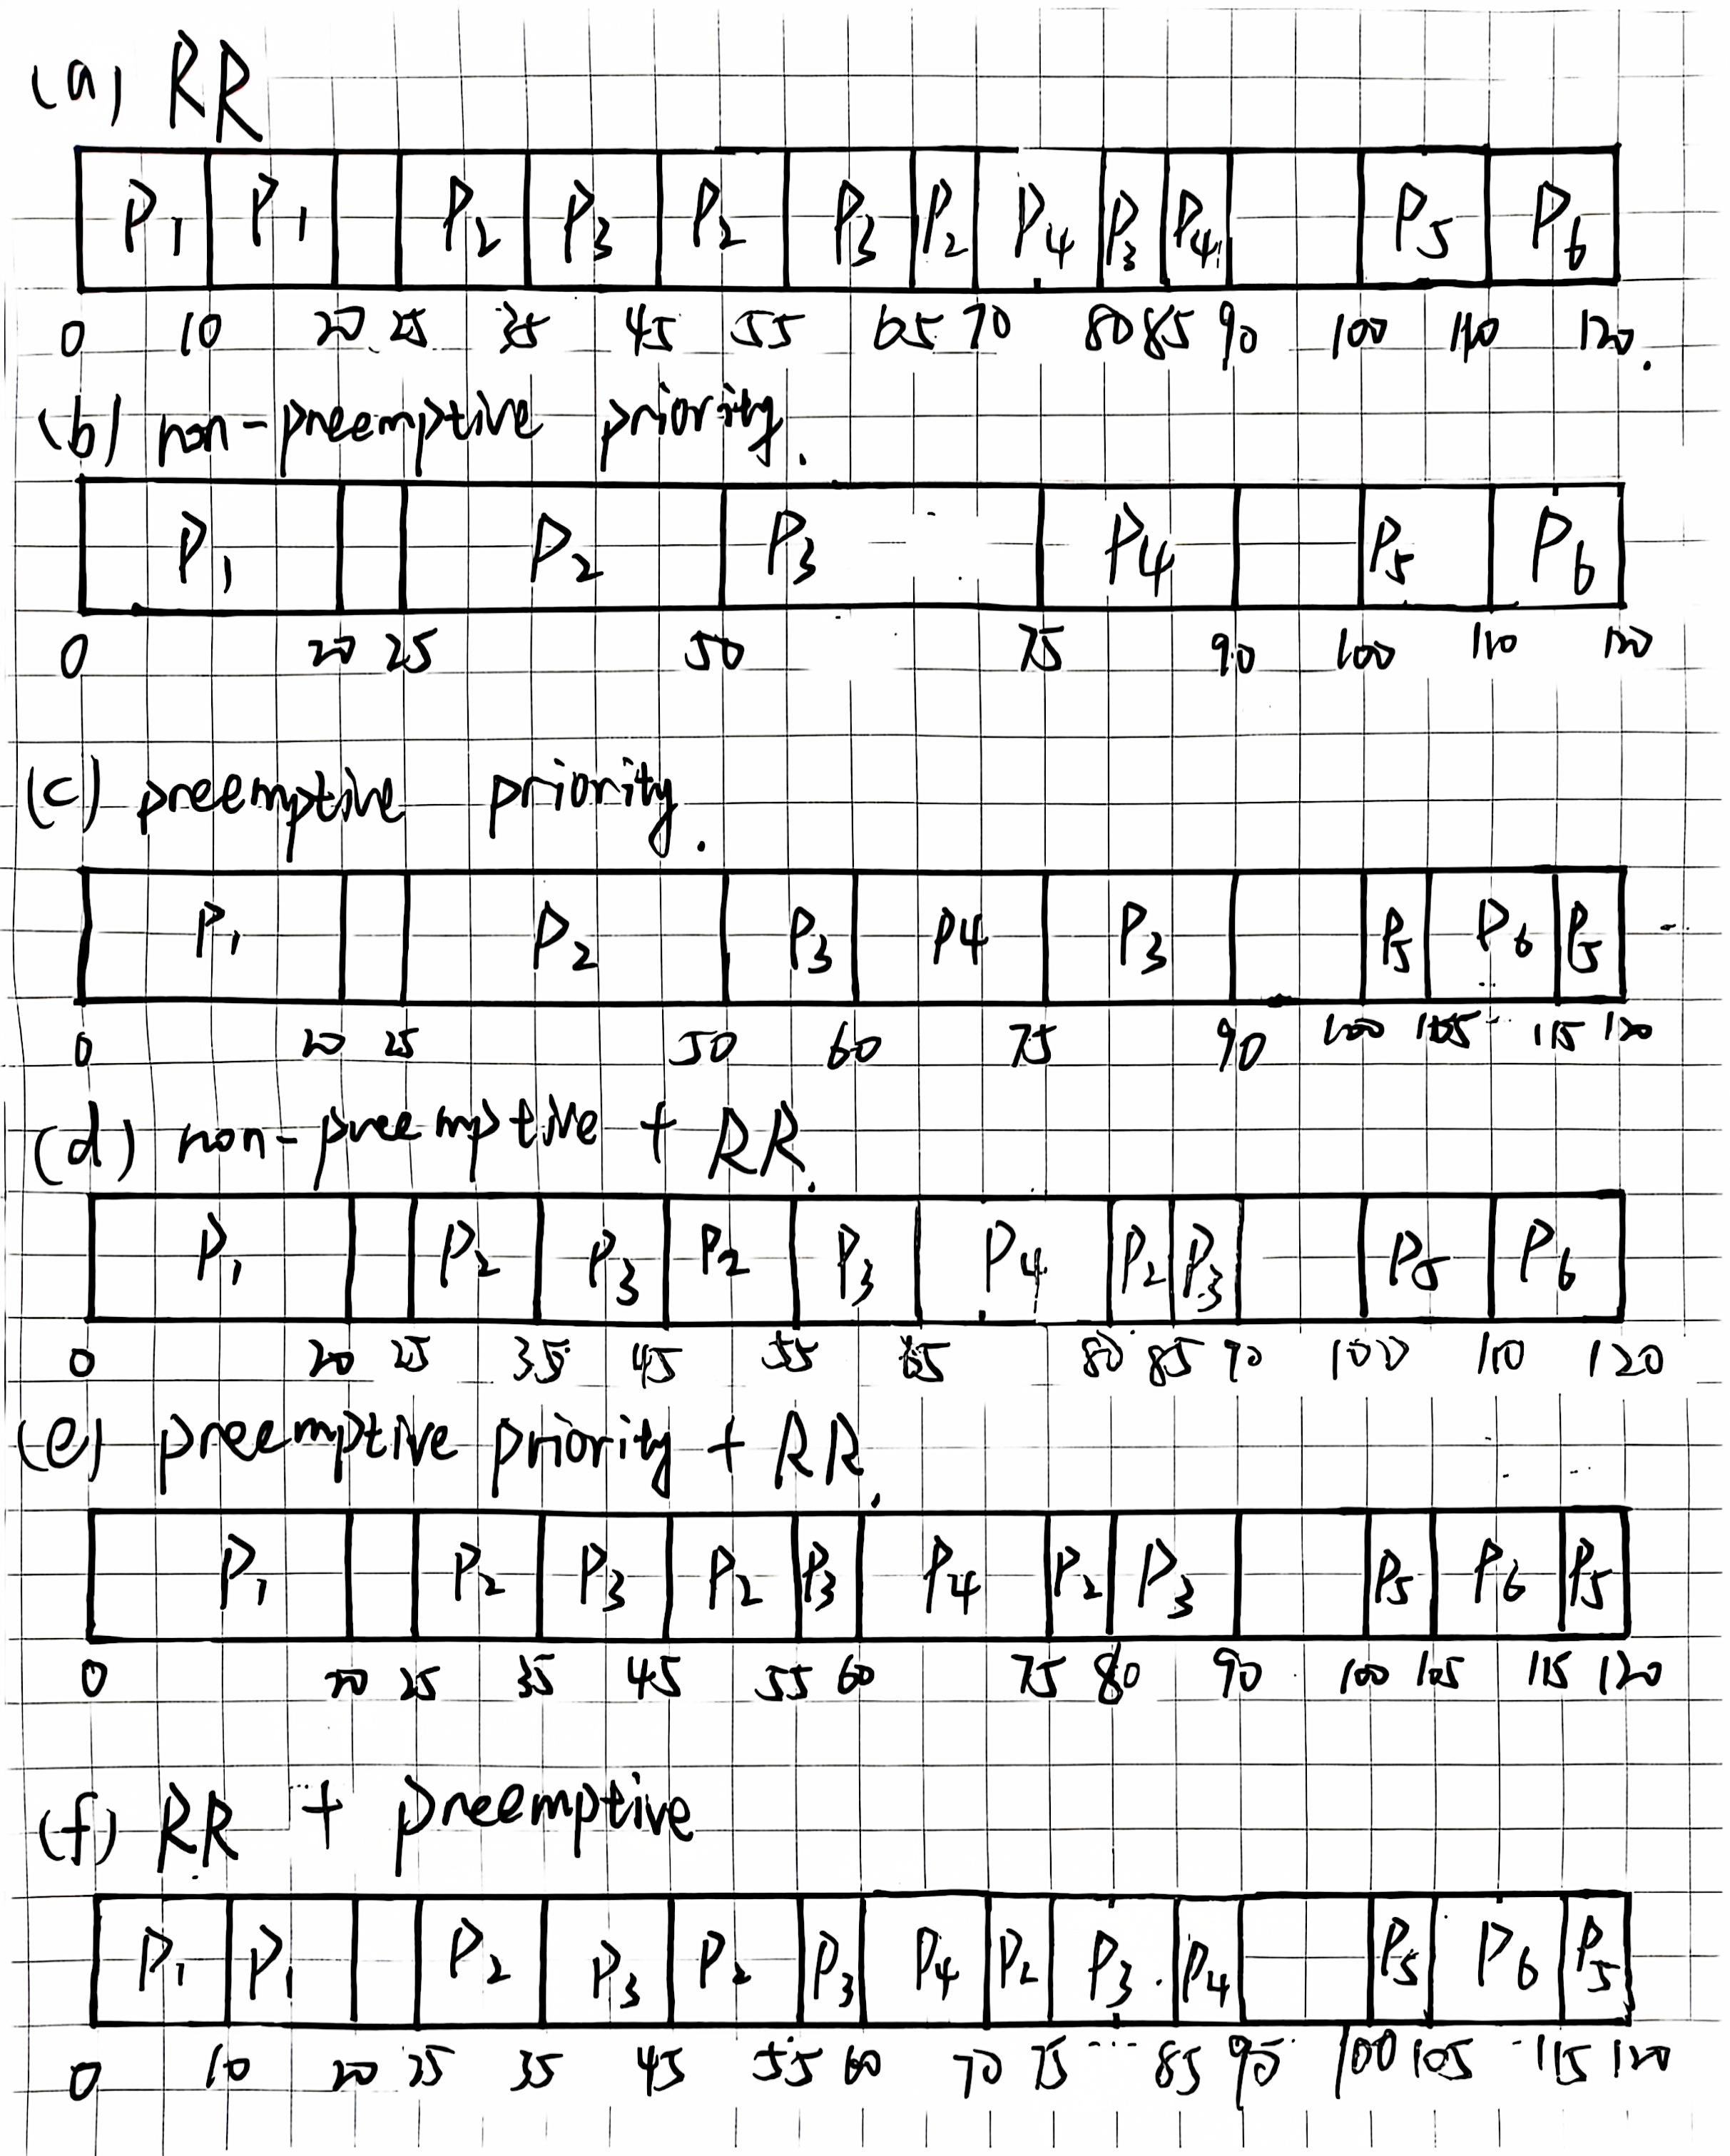 (a) RR
P1 P1 P2 P3 P2 P3 P2 P4 P3 P4 P5 P6
0 10 20 25 35 45 55 65 70 80 85 90 100 110 120.
(b) non-preemptive priority.
P1 P2 P3 P4 P5 P6
0 20 25 50 75 90 100 110 120
(c) preemptive priority.
P1 P2 P3 P4 P3 P5 P6 P5
0 20 25 50 60 75 90 100 105 115 120
(d) non-preemptive + RR.
P1 P2 P3 P2 P3 P4 P2 P3 P5 P6
0 20 25 35 45 55 65 80 85 90 100 110 120
(e) preemptive priority + RR.
P1 P2 P3 P2 P3 P4 P2 P3 P5 P6 P5
0 20 25 35 45 55 60 75 80 90 100 105 115 120
(f) RR + preemptive
P1 P1 P2 P3 P2 P3 P4 P2 P3 P4 P5 P6 P5
0 10 20 25 35 45 55 60 70 75 85 90 100 105 115 120